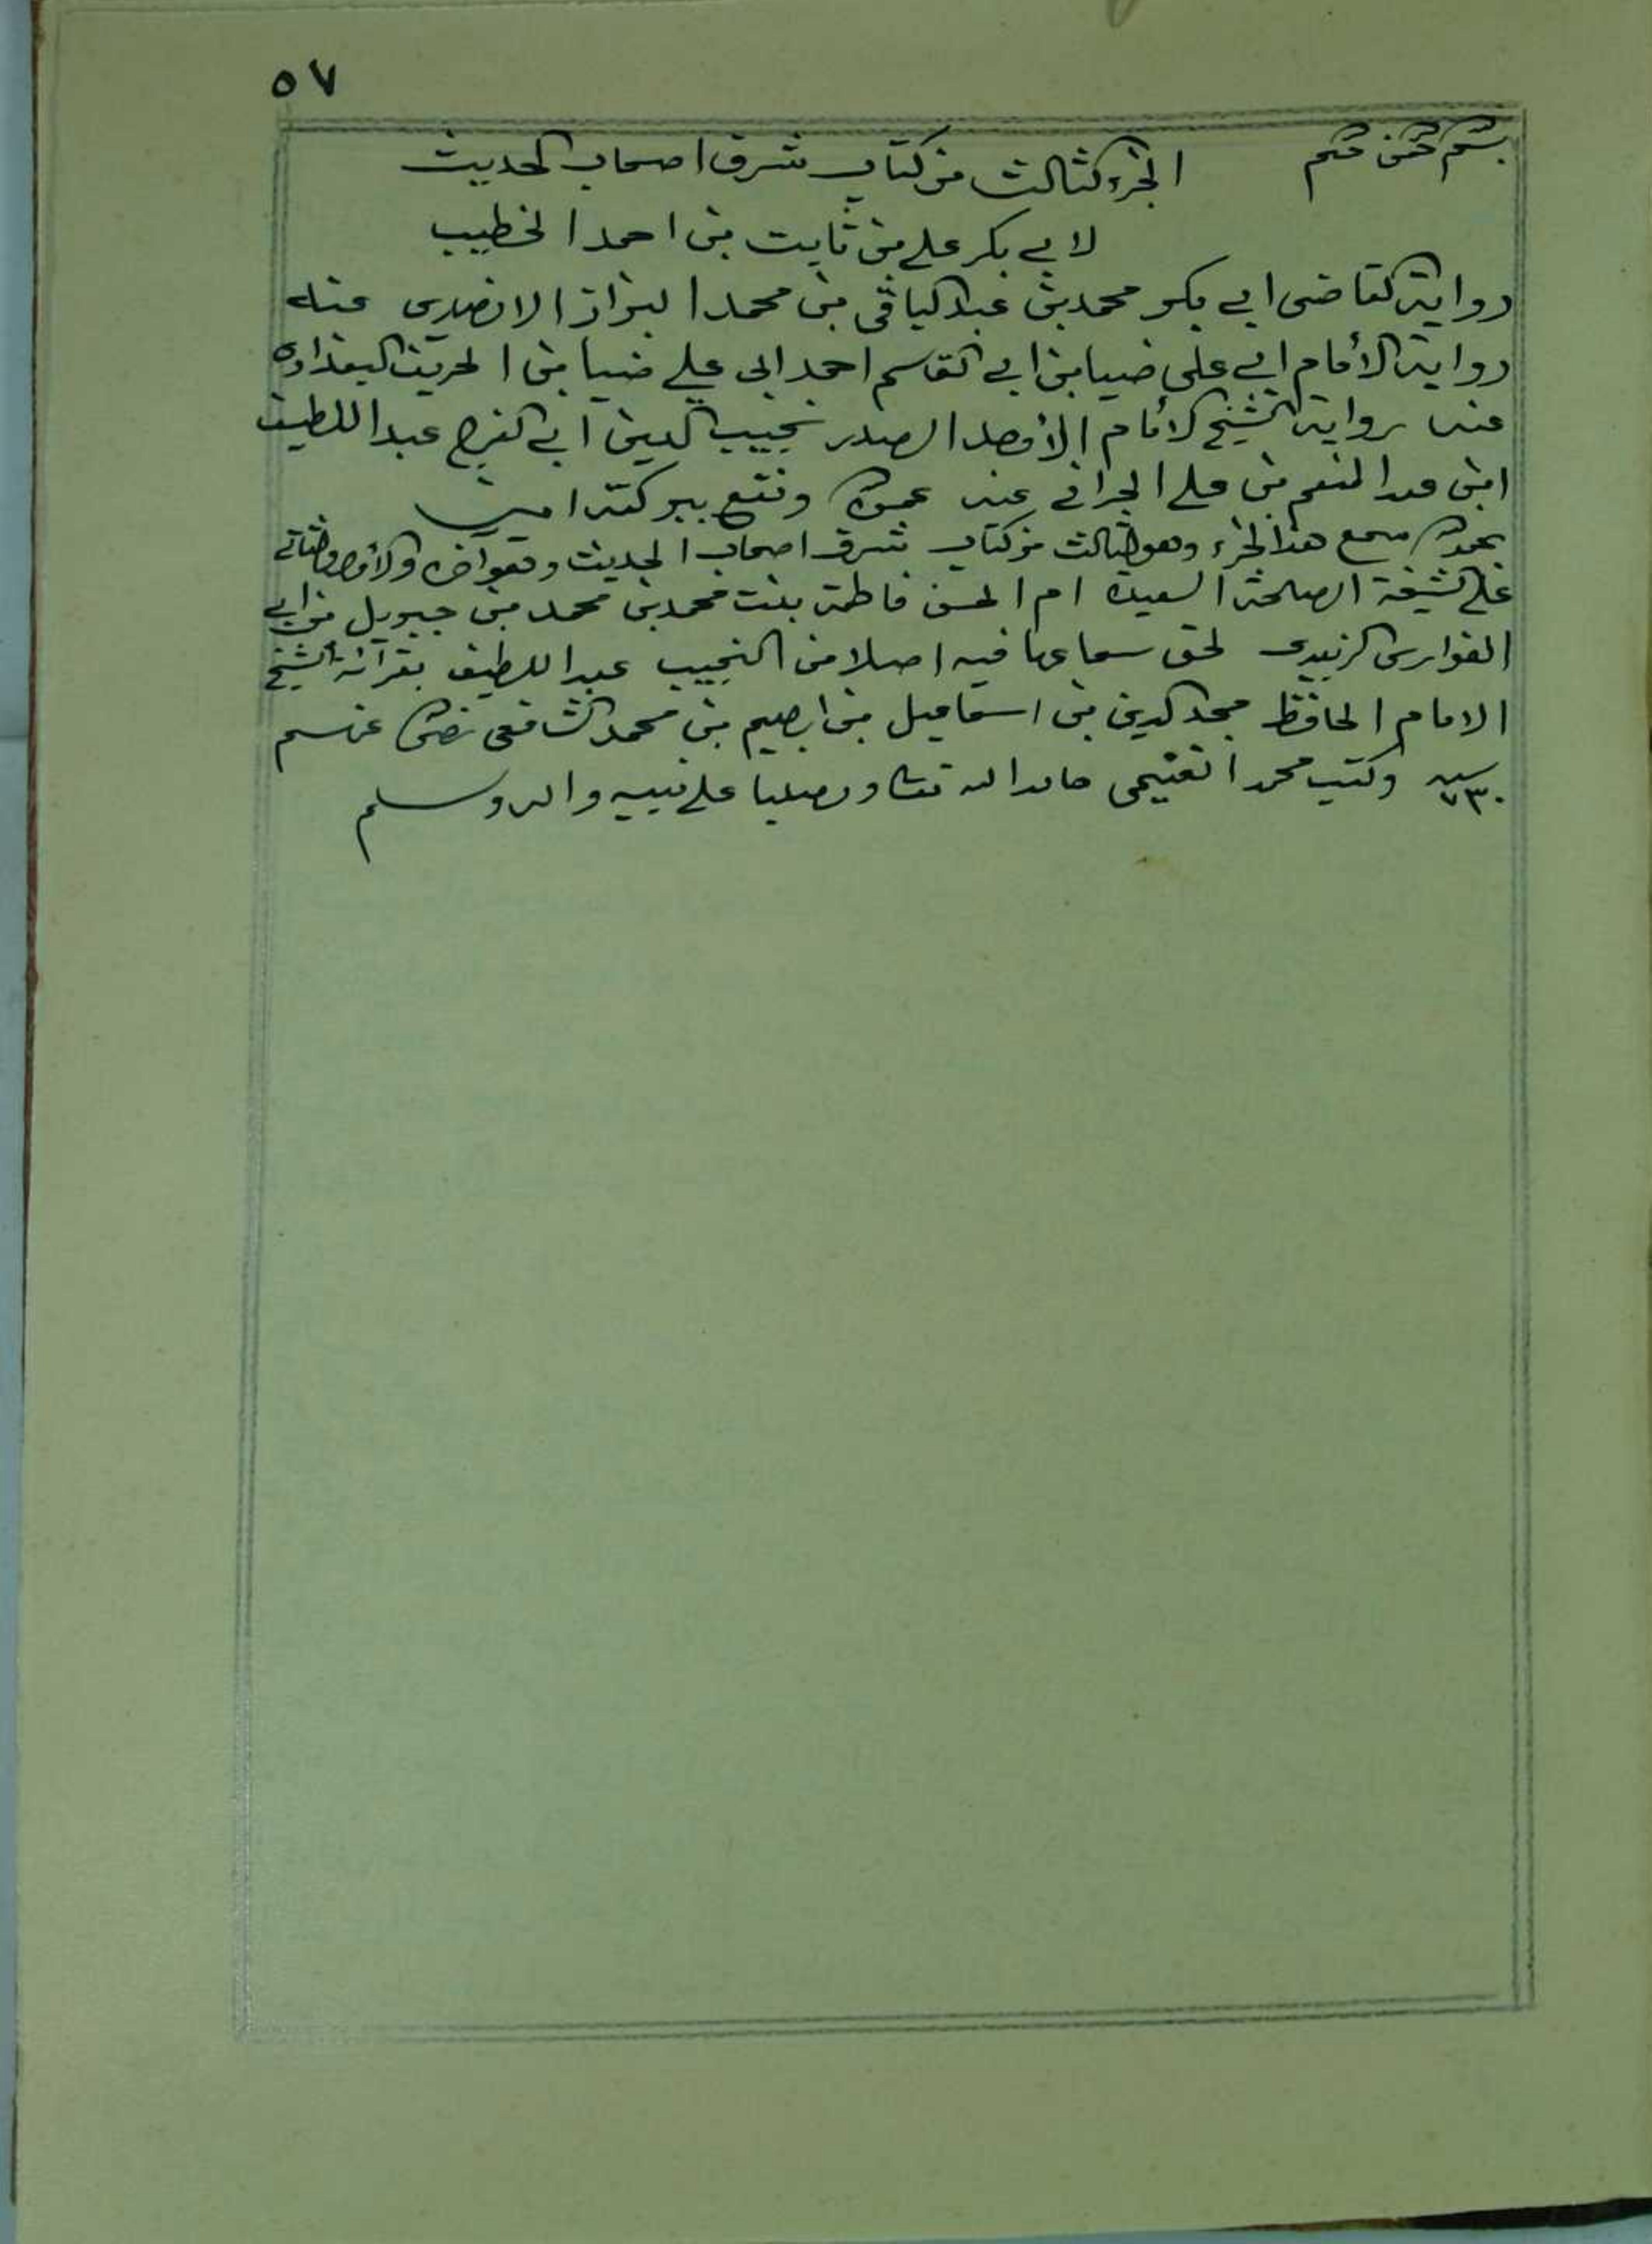 ٥٧
الجزء الثالث من كتاب شرف اصحاب الحديث
لابي بكر علي بن ثابت بن احمد الخطيب
رواية القاضى ابي بكر محمد بن عبد الباقي بن محمد البزاز الانصاري عنه
رواية الأمام ابي علي ضيا بن ابي القاسم احمد ابي علي ضيا بن الخريف البغدادي
عنه رواية الشيخ الأمام الأوحد الصدر نجيب الدين ابي الفرج عبد اللطيف
ابن عبد المنعم بن علي الحراني عنه ونفع ببركته امين
سمع هذا الجزء وهو الثالث من كتاب شرف اصحاب الحديث وهو اخره والأول والثاني
على الشيخة الصالحة السعيدة ام الحسن فاطمة بنت محمد بن محمد بن جبريل بن ابي
الفوارس الزبيدي لحق سماعها فيه اصلا من النجيب عبد اللطيف بقرأة الشيخ
الامام الحافظ مجد الدين بن اسماعيل بن ابرهيم بن محمد الشافعى
سنة ٧٣٠ وكتب محمد حامدا لله تعالى ومصليا على نبيه واله وسلم